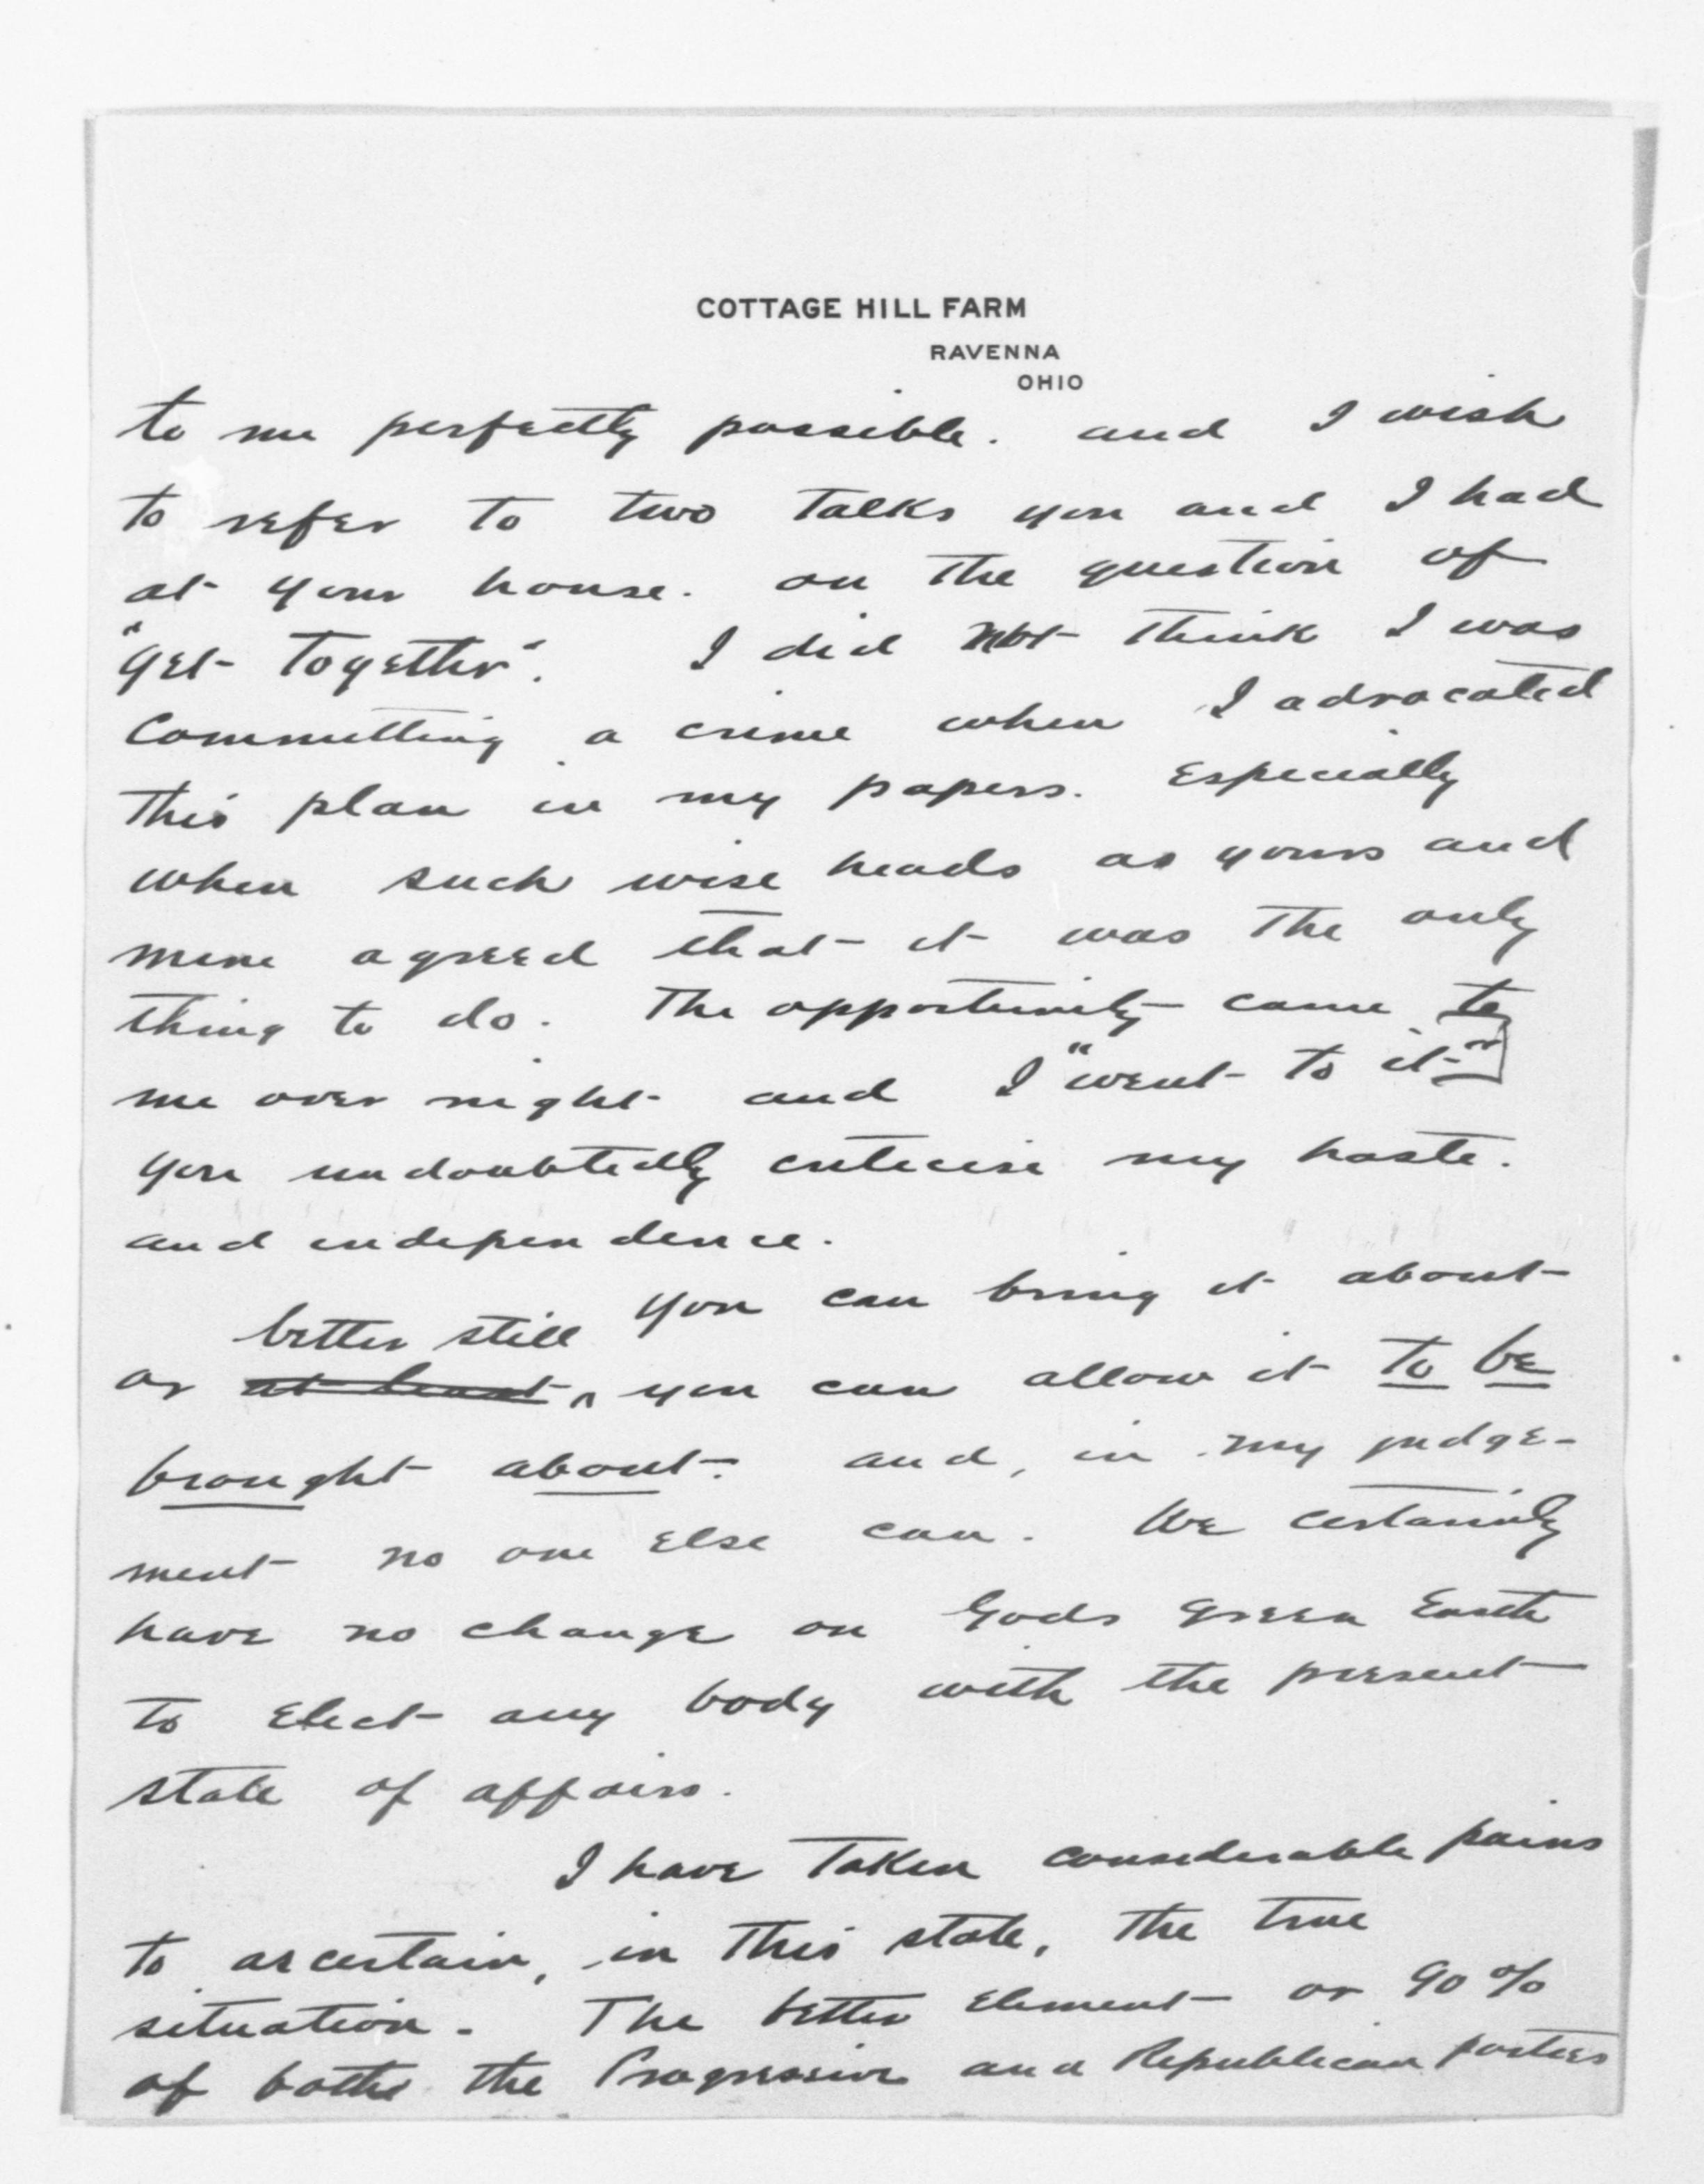 COTTAGE HILL FARM
RAVENNA
OHIO
to me perfectly possible. and I wish
to refer to two talks you and I had
at your house. on the question of
"get together". I did not think I was
committing a crime when I advocated
this plan in my papers. Especially
when such wise heads as yours and
mine agreed that it was the only
thing to do. The opportunity came to
me over night and I "went to it"
you undoubtedly criticise my haste.
and independence.
You can bring it about
better still
or at least, you can allow it to be
brought about. and, in my judge-
ment no one else can. We certainly
have no change on Gods green Earth
to elect any body with the present
state of affairs.
I have taken considerable pains
to ascertain, in this state, the true
situation. The better element or 90%
of both the Progressive and Republican parties